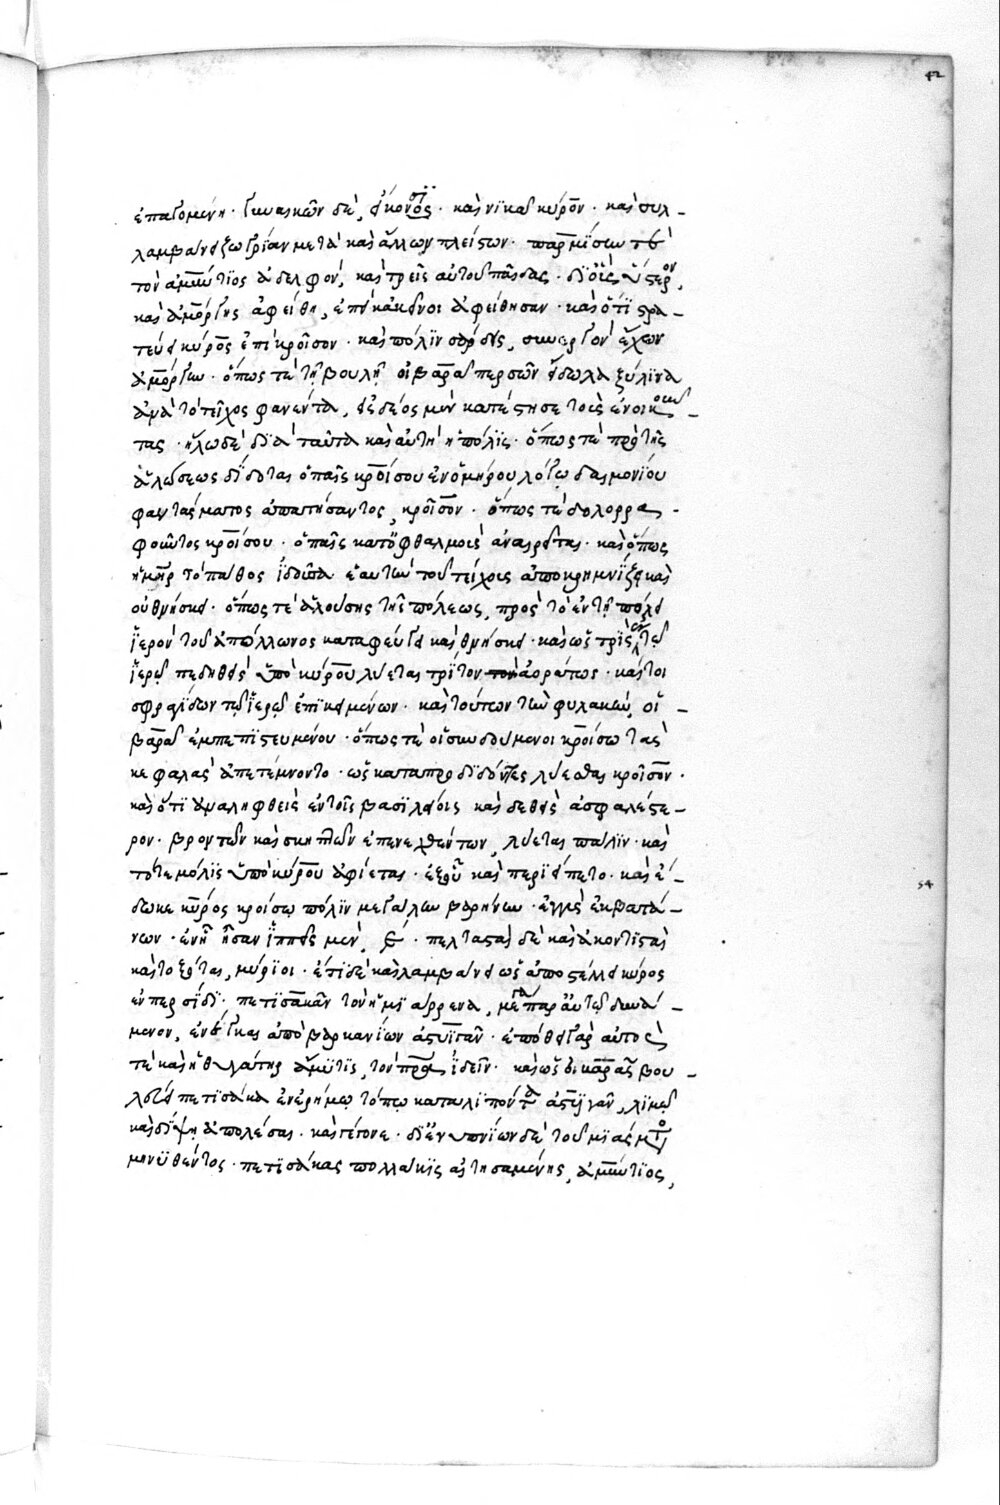 42
ἐπαγομένη· γυναικῶν δὲ, εἴκοσι· καὶ νικᾶ κῦρον· καὶ συλ-
λαμβάνει ζωγρίαν μετὰ καὶ ἄλλων πλείστων· παρμίσην τε
τὸν ἀμύτιος ἀδελφὸν, καὶ τρεῖς αὐτοῦ παῖδας· δι᾽ οὓς ὕστερον,
καὶ ἀμόργης ἀφείθη, ἐπεὶ κἀκεῖνοι ἀφείθησαν· καὶ ὅτι στρα-
τεύει κῦρος ἐπὶ κροῖσον· καὶ πόλιν σάρδεις, συνεργὸν ἔχων
ἀμόργην· ὅπως τὲ τῇ βουλῇ οἰβάρα περσῶν εἴδωλα ξύλινα
ἀνὰ τὸ τεῖχος φανέντα, εἰς δέος μὲν κατέστησε τοὺς ἐνοικοῦν-
τας· ἥλω δὲ διὰ ταῦτα καὶ αὐτὴ ἡ πόλις· ὅπως τὲ πρὸ τῆς
ἁλώσεως δίδοται ὁ παῖς κροίσου ἐν ὁμήρου λόγῳ δαιμονίου
φαντάσματος ἀπατήσαντος, κροῖσον· ὅπως τὲ δολορρα-
φοῦντος κροίσου· ὁ παῖς κατ᾽ ὀφθαλμοὺς ἀναιρεῖται· καὶ ὅπως
ἡ μήτηρ τὸ πάθος ἰδοῦσα ἑαυτὴν τοῦ τείχους ἀποκρημνίζει καὶ
θνήσκει· ὅπως τὲ ἁλούσης τῆς πόλεως, πρὸς τὸ ἐν τῇ πόλει
ἱερὸν τοῦ ἀπόλλωνος καταφεύγει καὶ θνήσκει· καὶ ὡς τρὶς ἐν τῷ
ἱερῷ πεδηθεὶς ὑπὸ κύρου λύεται τρίτον ἀοράτως· καίτοι
σφραγίδων τῷ ἱερῷ ἐπικειμένων· καὶ τούτων τὴν φυλακὴν, οἰ-
βάρα ἐμπεπιστευμένου· ὅπως τὲ οἱ συνδούμενοι κροίσω τὰς
κεφαλὰς ἀπετέμνοντο· ὡς καταπροδιδόντες λύεσθαι κροῖσον·
καὶ ὅτι ἀναληφθεὶς ἐν τοῖς βασιλείοις καὶ δεθεὶς ἀσφαλέστε-
ρον· βροντῶν καὶ σκηπτῶν ἐπενεχθέντων, λύεται πάλιν· καὶ
τότε μόλις ὑπὸ κύρου ἀφίεται· ἐξ οὗ καὶ περιείπετο· καὶ ἔ-
δωκε κῦρος κροίσῳ πόλιν μεγάλην βαρήνην· ἐγγὺς ἐκβατά-
54
νων· ἐν ᾗ ἦσαν ἱππεῖς μὲν, ͵ε· πελτασταὶ δὲ καὶ ἀκοντισταὶ
καὶ τοξόται, μύριοι· ἔτι δὲ καὶ λαμβάνει ὡς ἀποστέλλει κῦρος
ἐν περσίδι· πετισάκαν τὸν ἡμιάρρενα, μέγα παρ᾽ αὐτῷ δυνά-
μενον, ἐνέγκαι ἀπὸ βαρκανίων ἀστυίγαν· ἐπόθει γὰρ αὐτὸς
τὲ καὶ ἡ θυγάτηρ ἄμυτις, τὸν πατέρα ἰδεῖν· καὶ ὡς οἰβάρας βου-
λεύει πετισάκα ἐν ἐρήμῳ τόπῳ καταλιπόντα ἀστυίγαν, λιμῷ
καὶ δίψῃ ἀπολέσαι· καὶ γέγονε· δι᾽ ἐνυπνίων δὲ τοῦ μιάσματος
μηνυθέντος· πετισάκας πολλάκις αἰτησαμένης, ἀμύτιος,